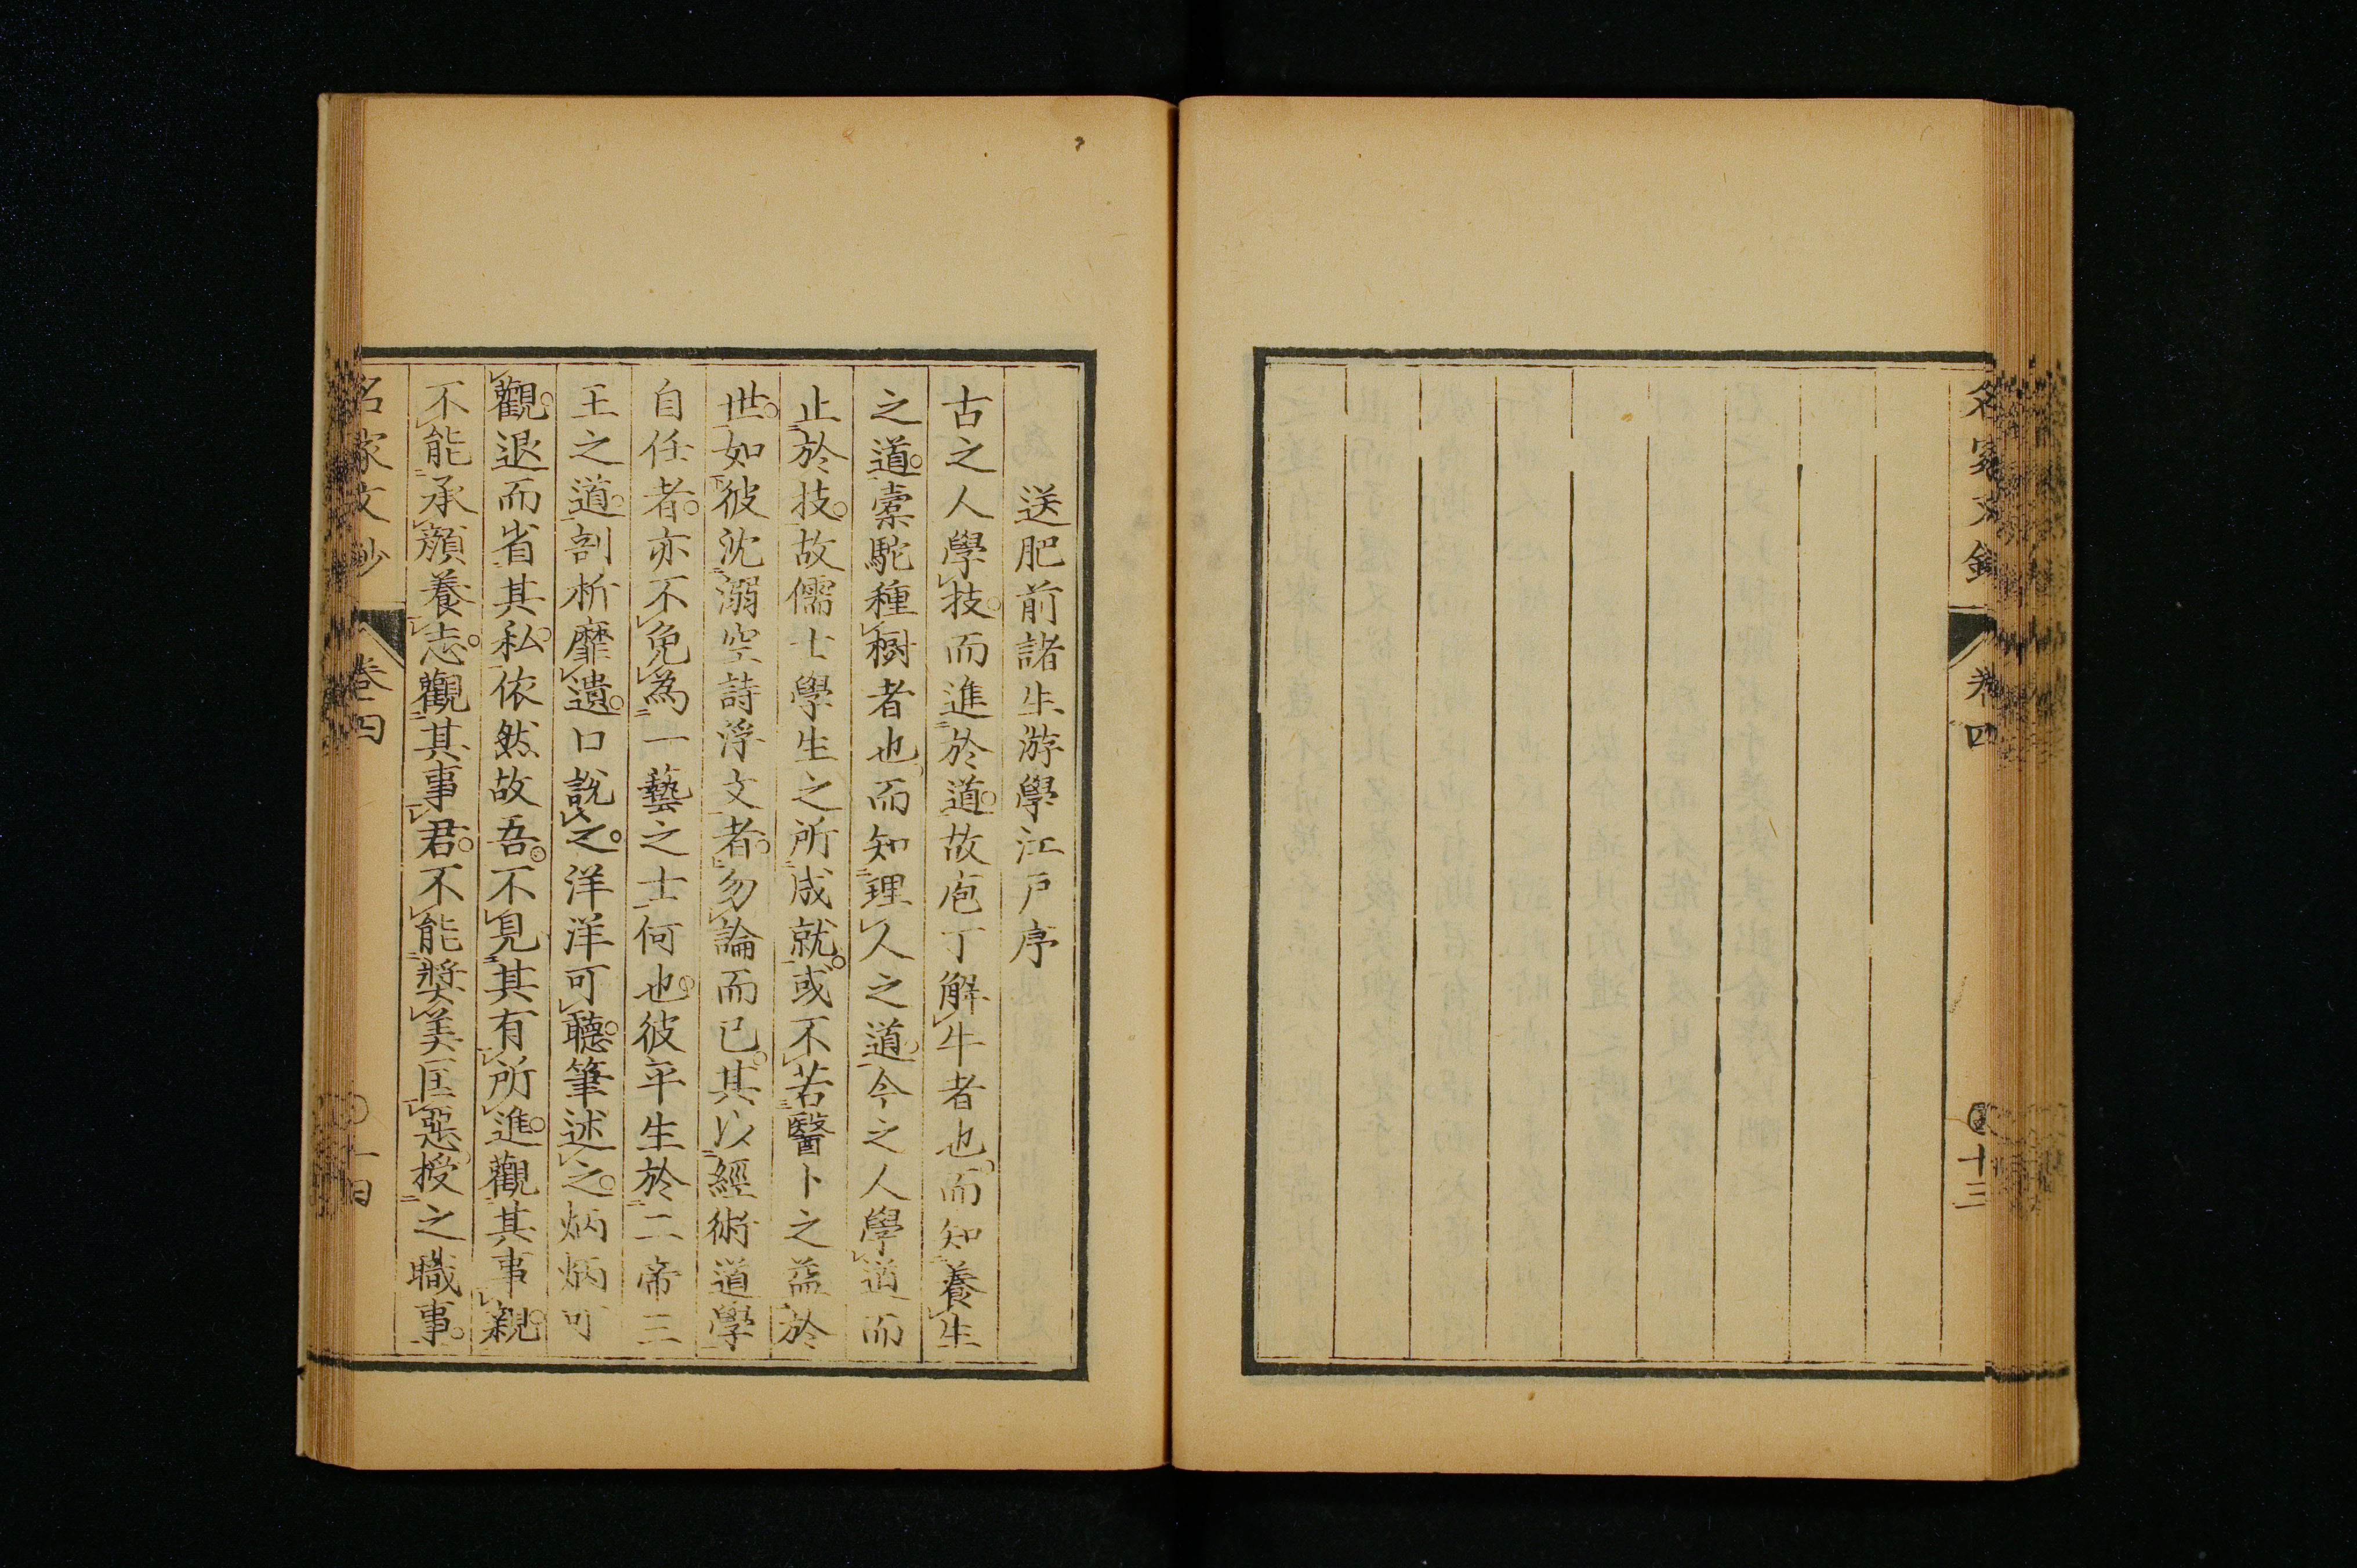 名家文鈔
卷四
十三
送肥前諸生游學江戶序
古之人學技而進於道故庖丁解牛者也而知養生
之道槖駝種樹者也而知理人之道今之人學道而
止於技故儒士學生之所成就或不若醫卜之益於
世如彼沈溺空詩浮文者勿論而已其以經術道學
自任者亦不免為一藝之士何也彼平生於二帝三
王之道剖析靡遺口說之洋洋可聽筆述之炳炳可
觀退而省其私依然故吾不見其有所進觀其事親
不能承顏養志觀其事君不能獎美匡惡授之職事
名家文鈔
卷四
十四